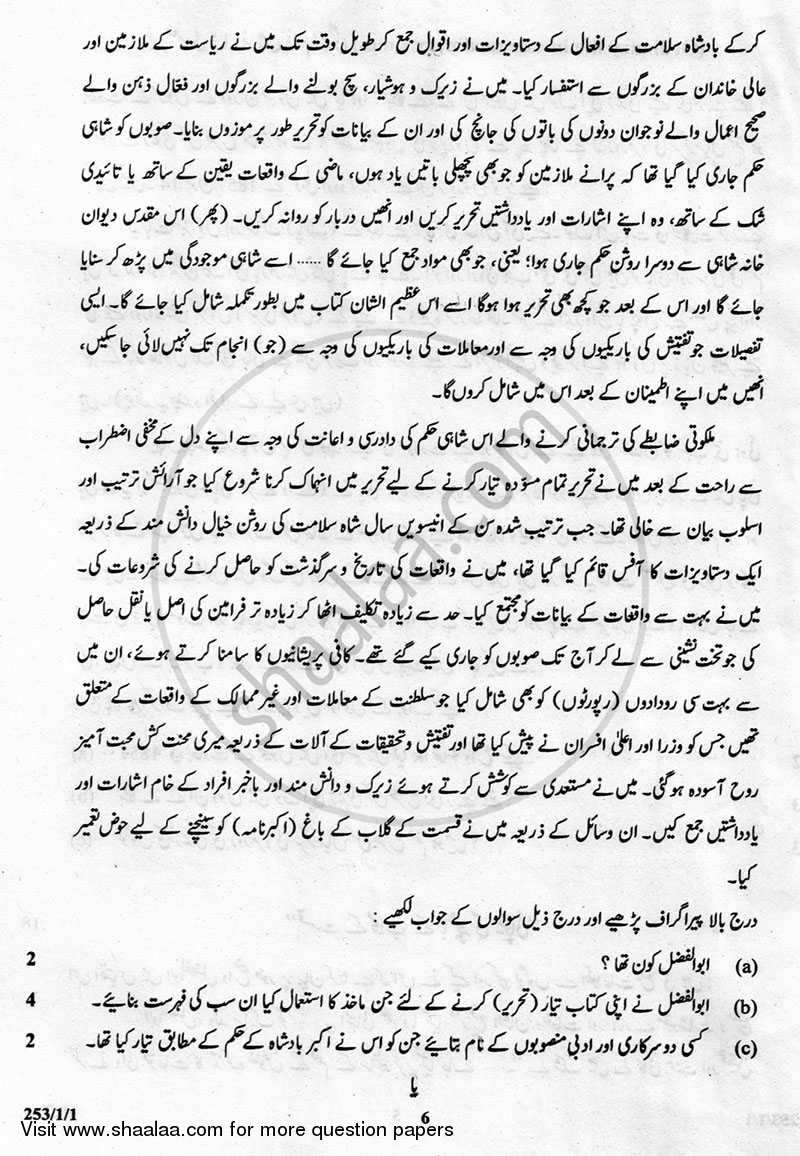 کرکے بادشاہ سلامت کے افعال کے دستاویزات اور اقوال جمع کر طویل وقت تک میں نے ریاست کے ملازمین اور
عالی خاندان کے بزرگوں سے استفسار کیا۔ میں نے زیرک و ہوشیار، سچ بولنے والے بزرگوں اور فعّال ذہن والے
صحیح اعمال والے نوجوان دونوں کی باتوں کی جانچ کی اور ان کے بیانات کو تحریر طور پر موزوں بنایا۔ صوبوں کو شاہی
حکم جاری کیا گیا تھا کہ پرانے ملازمین کو جو بھی پچھلی باتیں یاد ہوں، ماضی کے واقعات یقین کے ساتھ یا تائیدی
شک کے ساتھ، وہ اپنے اشارات اور یادداشتیں تحریر کریں اور انھیں دربار کو روانہ کریں۔ (پھر) اس مقدس دیوان
خانہ شاہی سے دوسرا روشن حکم جاری ہوا؛ یعنی، جو بھی مواد جمع کیا جائے گا ...... اسے شاہی موجودگی میں پڑھ کر سنایا
جائے گا اور اس کے بعد جو کچھ بھی تحریر ہوا ہوگا اسے اس عظیم الشان کتاب میں بطور تکملہ شامل کیا جائے گا۔ ایسی
تفصیلات جو تفتیش کی باریکیوں کی وجہ سے اور معاملات کی باریکیوں کی وجہ سے (جو) انجام تک نہیں لائی جاسکیں،
انھیں میں اپنے اطمینان کے بعد اس میں شامل کروں گا۔
ملکوتی ضابطے کی ترجمانی کرنے والے اس شاہی حکم کی دادرسی و اعانت کی وجہ سے اپنے دل کے مخفی اضطراب
سے راحت کے بعد میں نے تحریر تمام مسوّدہ تیار کرنے کے لیے تحریر میں انہماک کرنا شروع کیا جو آرائش ترتیب اور
اسلوب بیان سے خالی تھا۔ جب ترتیب شدہ سن کے انیسویں سال شاہ سلامت کی روشن خیال دانش مند کے ذریعہ
ایک دستاویزات کا آفس قائم کیا گیا تھا، میں نے واقعات کی تاریخ و سرگذشت کو حاصل کرنے کی شروعات کی۔
میں نے بہت سے واقعات کے بیانات کو مجتمع کیا۔ حد سے زیادہ تکلیف اٹھا کر زیادہ تر فرامین کی اصل یا نقل حاصل
کی جو تخت نشینی سے لے کر آج تک صوبوں کو جاری کیے گئے تھے۔ کافی پریشانیوں کا سامنا کرتے ہوئے، ان میں
سے بہت سی رودادوں (رپورٹوں) کو بھی شامل کیا جو سلطنت کے معاملات اور غیر ممالک کے واقعات کے متعلق
تھیں جس کو وزرا اور اعلیٰ افسران نے پیش کیا تھا اور تفتیش و تحقیقات کے آلات کے ذریعہ میری محنت کش محبت آمیز
روح آسودہ ہوگئی۔ میں نے مستعدی سے کوشش کرتے ہوئے زیرک و دانش مند اور باخبر افراد کے خام اشارات اور
یادداشتیں جمع کیں۔ ان وسائل کے ذریعہ میں نے قسمت کے گلاب کے باغ (اکبرنامہ) کو سینچنے کے لیے حوض تعمیر
کیا۔
درج بالا پیراگراف پڑھیے اور درج ذیل سوالوں کے جواب لکھیے :
(a) ابوالفضل کون تھا ؟ 2
(b) ابوالفضل نے اپنی کتاب تیار (تحریر) کرنے کے لئے جن ماخذ کا استعمال کیا ان سب کی فہرست بنائیے۔ 4
(c) کسی دو سرکاری اور ادبی منصوبوں کے نام بتائیے جن کو اس نے اکبر بادشاہ کے حکم کے مطابق تیار کیا تھا۔ 2
یا
253/1/1 6
Visit www.shaalaa.com for more question papers
shaalaa.com